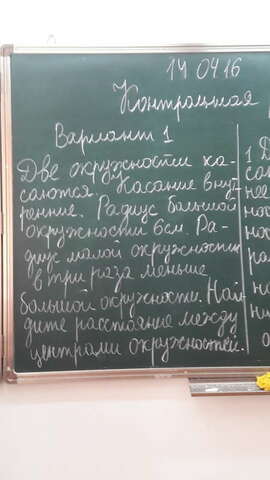 14 04 16
Контрольная
Вариант 1
Две окружности ка-
саются. Касание внут
ренние. Радиус большой
окружности 6см. Ра-
диус малой окружности
в три раза меньше
большой окружности. Най
дите расстояние между
центрами окружностей.
1